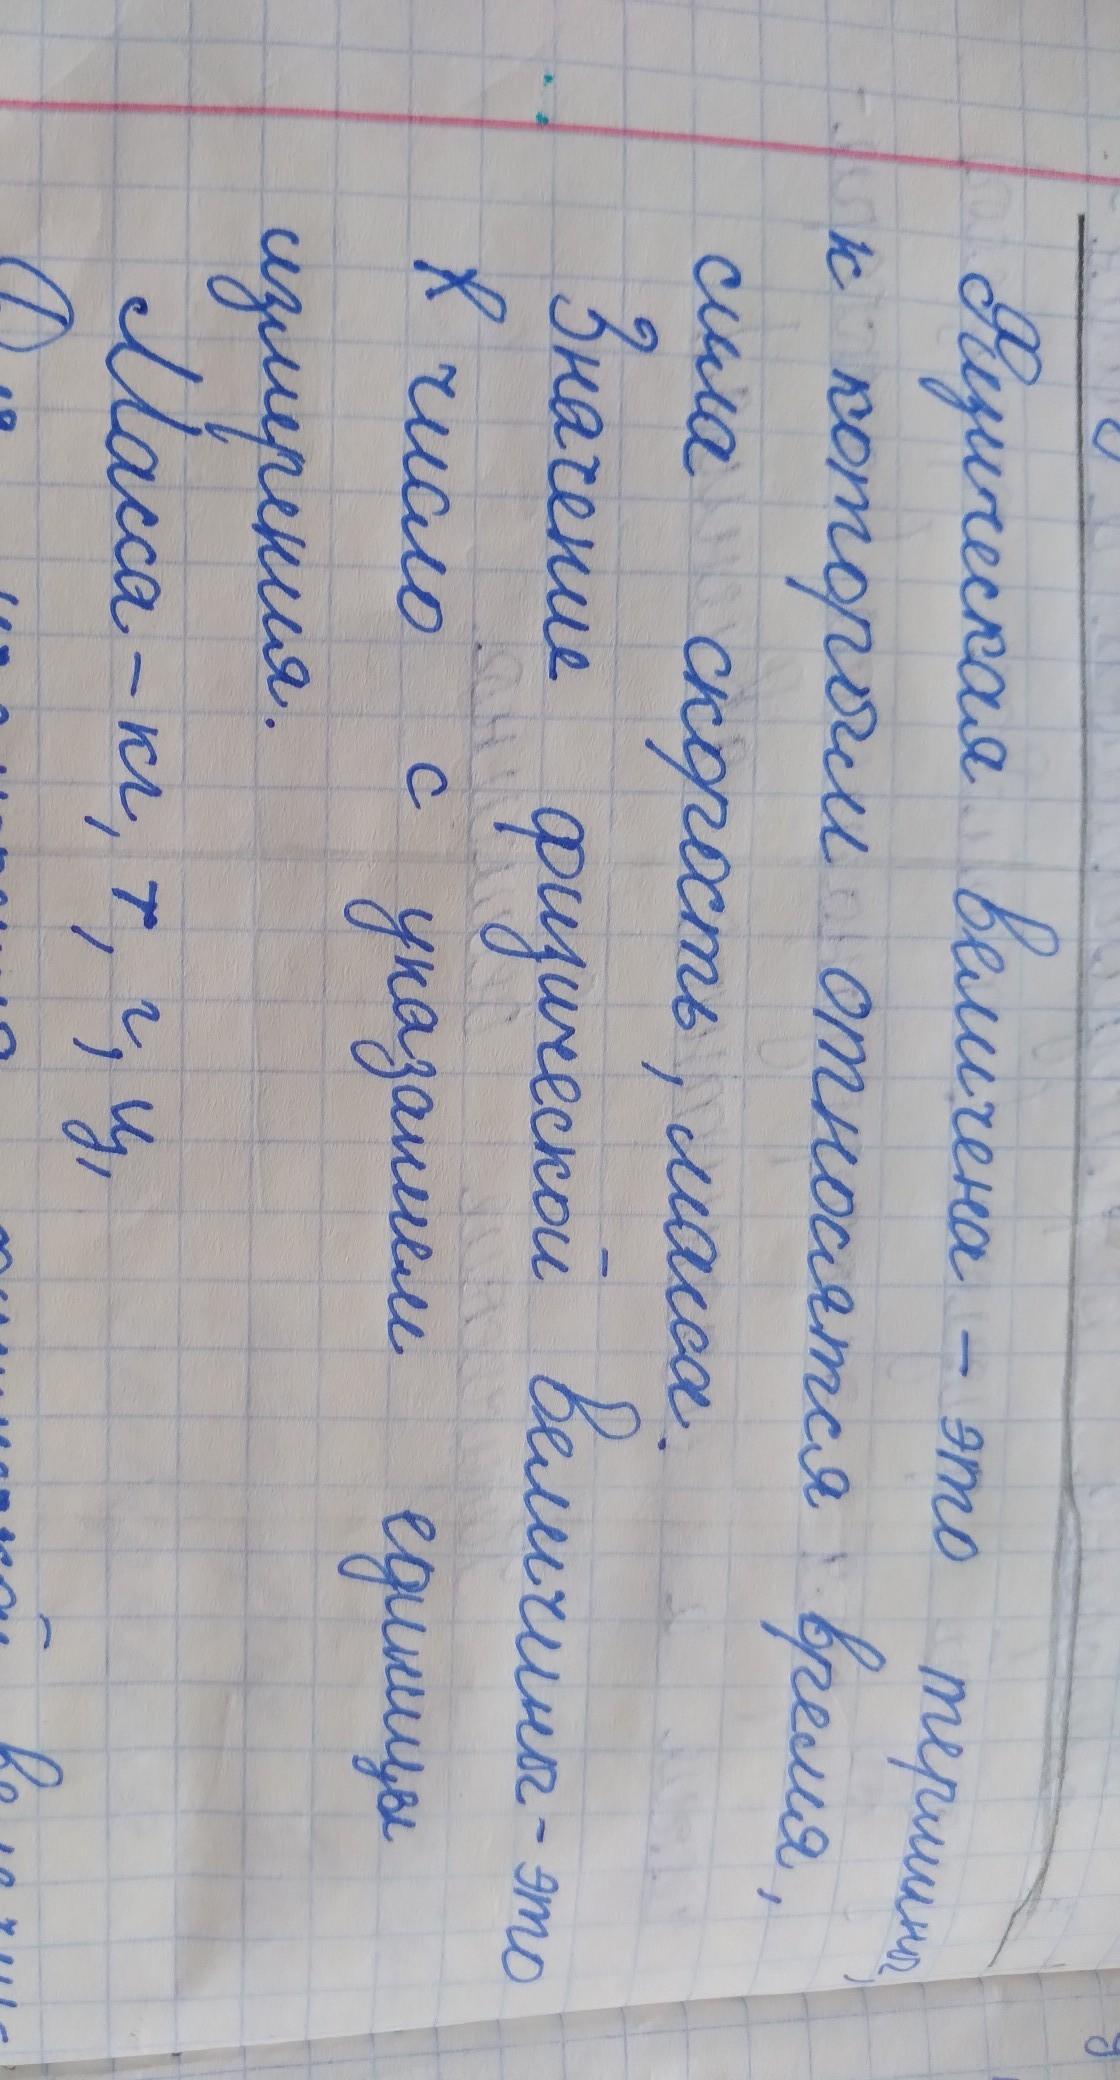 Физическая величена - это термины,
к которым относятся время,
сила скорость, масса.
Значение физической величины - это
X число с указанием единицы
измерения.
Масса - кг, т, г, ц,